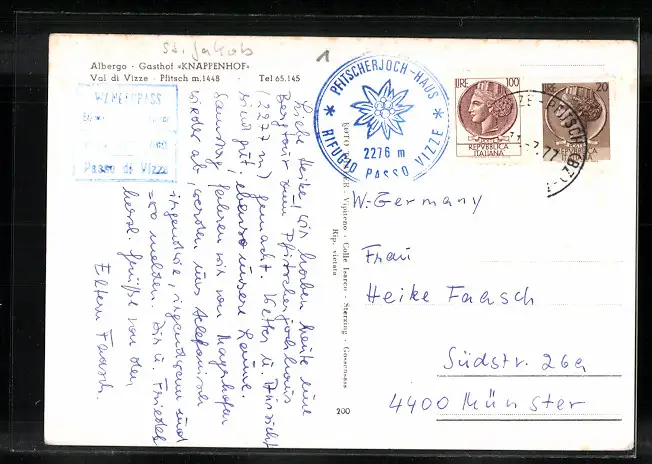 St. Jakob
1
Albergo - Gasthof «KNAPPENHOF»
Val di Vizze - Pfitsch m. 1448 - Tel 65.145
Passo di Vizze
* PFITSCHERJOCH-HAUS *
2276 m
RIFUGIO PASSO VIZZE
LIRE 100
REPVBBLICA
ITALIANA
LIRE 20
Liebe Heike! Wir haben heute eine
Bergtour zum Pfitscherjochhaus
(2277 m) gemacht. Wetter u. Aussicht
sind gut, ebenso unsere Laune.
Samstag fahren wir von Mayrhofen
wieder ab, werden uns telefonisch
irgendwie, irgendwann mal
melden. Dir u. Frieder
herzl. Grüße von den
Eltern Faasch.
Vipiteno - Colle Isarco - Sterzing - Gossensass
Rip. vietata
200
W.-Germany
Frau
Heike Faasch
Südstr. 26a
4400 Münster